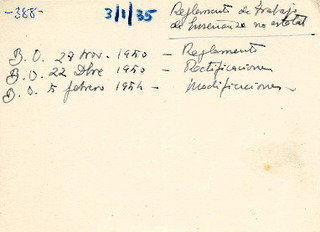 -388-
3/1/35
Reglamento de Trabajo
de Enseñanza no estatal
B.O. 27 Nov. 1950 - Reglamento
B.O. 22 Dbre 1950 - Rectificaciones
B.O. 5 febrero 1954 - Modificaciones